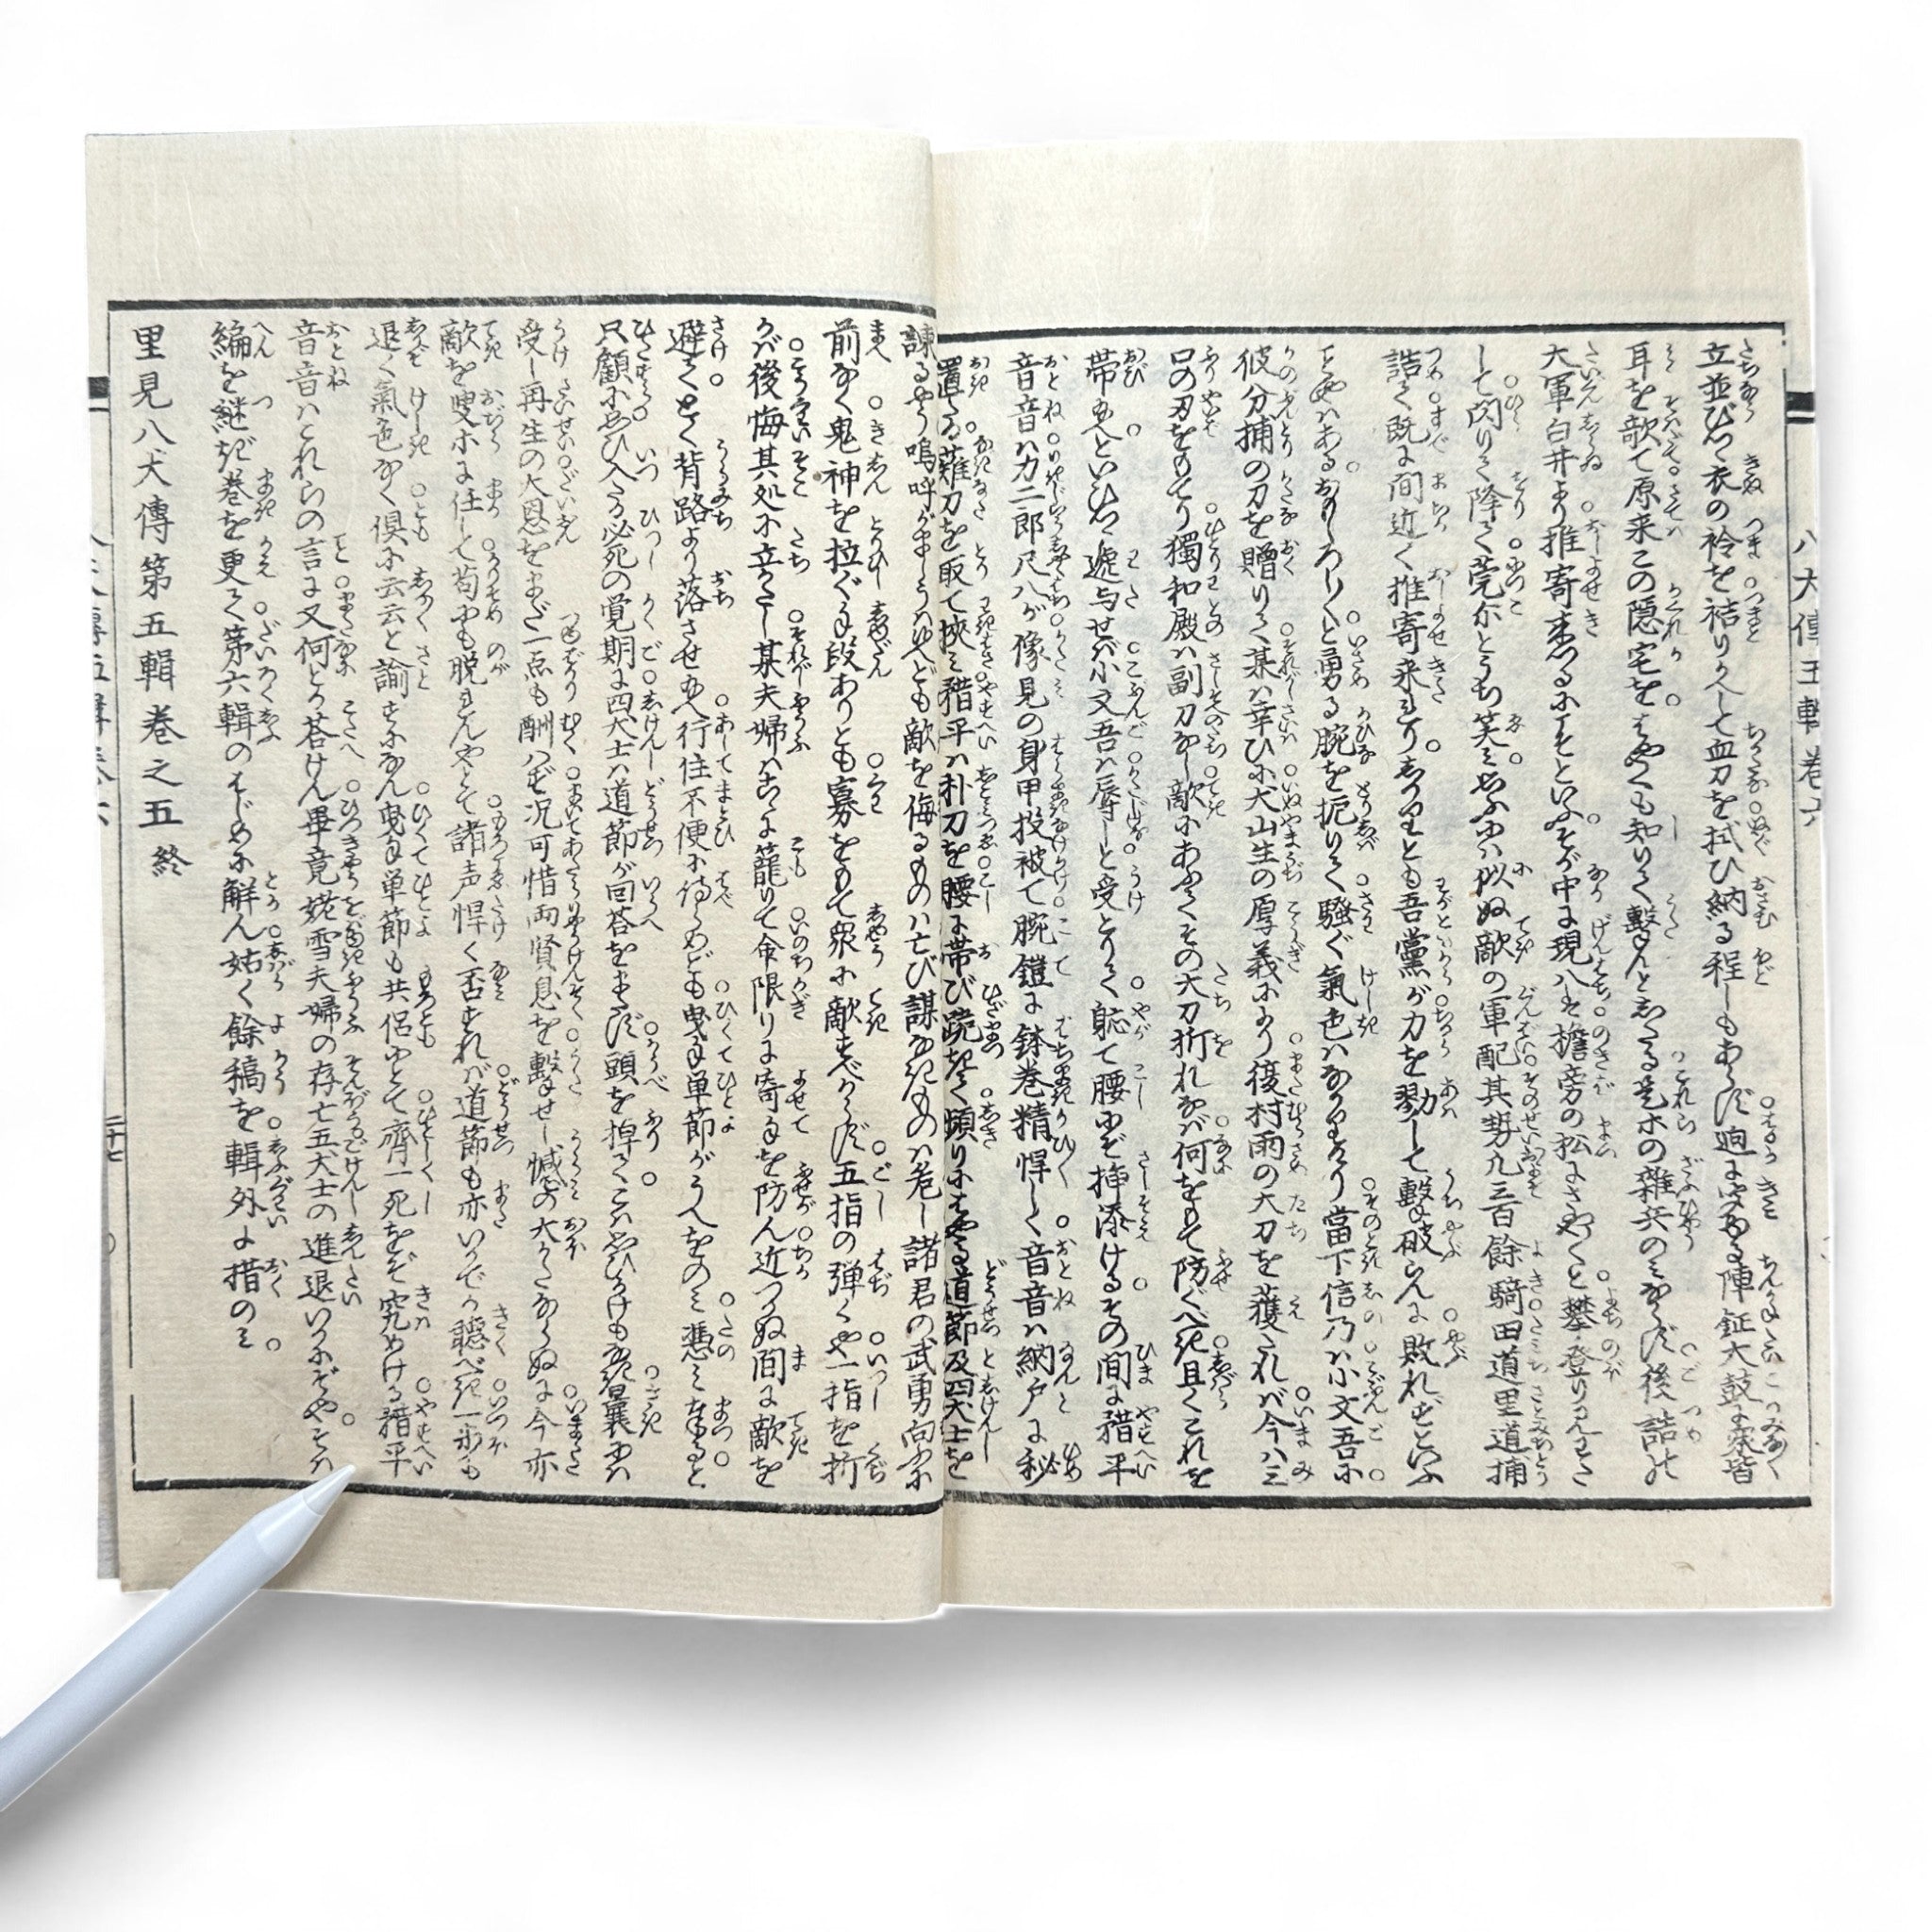 八犬傳五輯卷六
立並びつゝ衣の袊を褚りかへして血刀を拭ひ納る程しもあらず迫に聞ゆる陣鉦大鼓に衆皆
耳を欹て原来この隠宅をはやくも知りて撃んとしたる是木の雜兵のみならず後詰の
大軍白井より推寄来つるにこそといふそが中に現八は檐旁の松にさや〳〵と攀登りつゝ
して閃りと降て莞尓とうち笑み思ふには似ぬ敵の軍配其勢凡三百餘騎田道里道捕
詰て既に間近く推寄来れりしかりとも吾黨が力を勠して撃破らんに敗れずといふ
ことやはあるあなしろしと勇る腕を扼りて騒ぐ氣色はなかりけり當下信乃は小文吾に
彼分捕の刀を贈りて某は幸ひに犬山生の厚義により復村雨の大刀を獲たれば今は三
口の刃をもてり獨和殿は副刀なし敵にあふてその大刀折れなば何をもて防ぐべき且くこれを
帯給へといひつゝ遞与せば小文吾は辱しと受とりて軈て腰にぞ挿添ける その間に猎平
音音は力二郎尺八が像見の身甲投被て腕鎧に鉢巻精悍しく音音は納戸に秘
置たる薙刀を取て挾み猎平は朴刀を腰に帯び跪きて頻りにはやる道節及四犬士を
諫るやう嗚呼がましうは侍れども敵を侮るものは亡び謀なきものは危し諸君の武勇向ふに
前なく鬼神を拉ぐ手段ありとも寡をもて衆に敵すべからず五指の弾くや一指を折
らば後悔其処に立かたし某夫婦はこゝに籠りて命限りに寄手を防ん近つかぬ間に敵を
避てとく背路より落させ給へ行住不便に侍らめども曳手単節がうへをのみ憑み奉ると
只顧に思ひ入たる必死の覚期に四犬士は道節が回答をまたず頭を掉てこは思ひかけもなき曩には
受し再生の大恩をまだ一点も酬はぜ况可惜両賢息を撃せし憾の大かたならぬに今亦
敵を叟等に任して苟にも脱れんやとて諸声悍く否めれば道節も亦いかでか聴べき一歩も
退く氣色なく倶に云云と諭すになん曳手単節も共侶にとて齊一死をぞ究めける猎平
音音はこれらの言に又何とか荅けん畢竟姥雪夫婦の存亡五犬士の進退いかにぞやそは
編を継ぎ巻を更て第六輯のはじめに解ん姑く餘稿を輯外に措のみ
里見八犬傳第五輯卷之五終
二十七